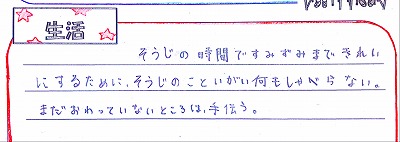 生活
そうじの時間ですみずみまできれい
にするために、そうじのこといがい何もしゃべらない。
まだおわっていないところは、手伝う。